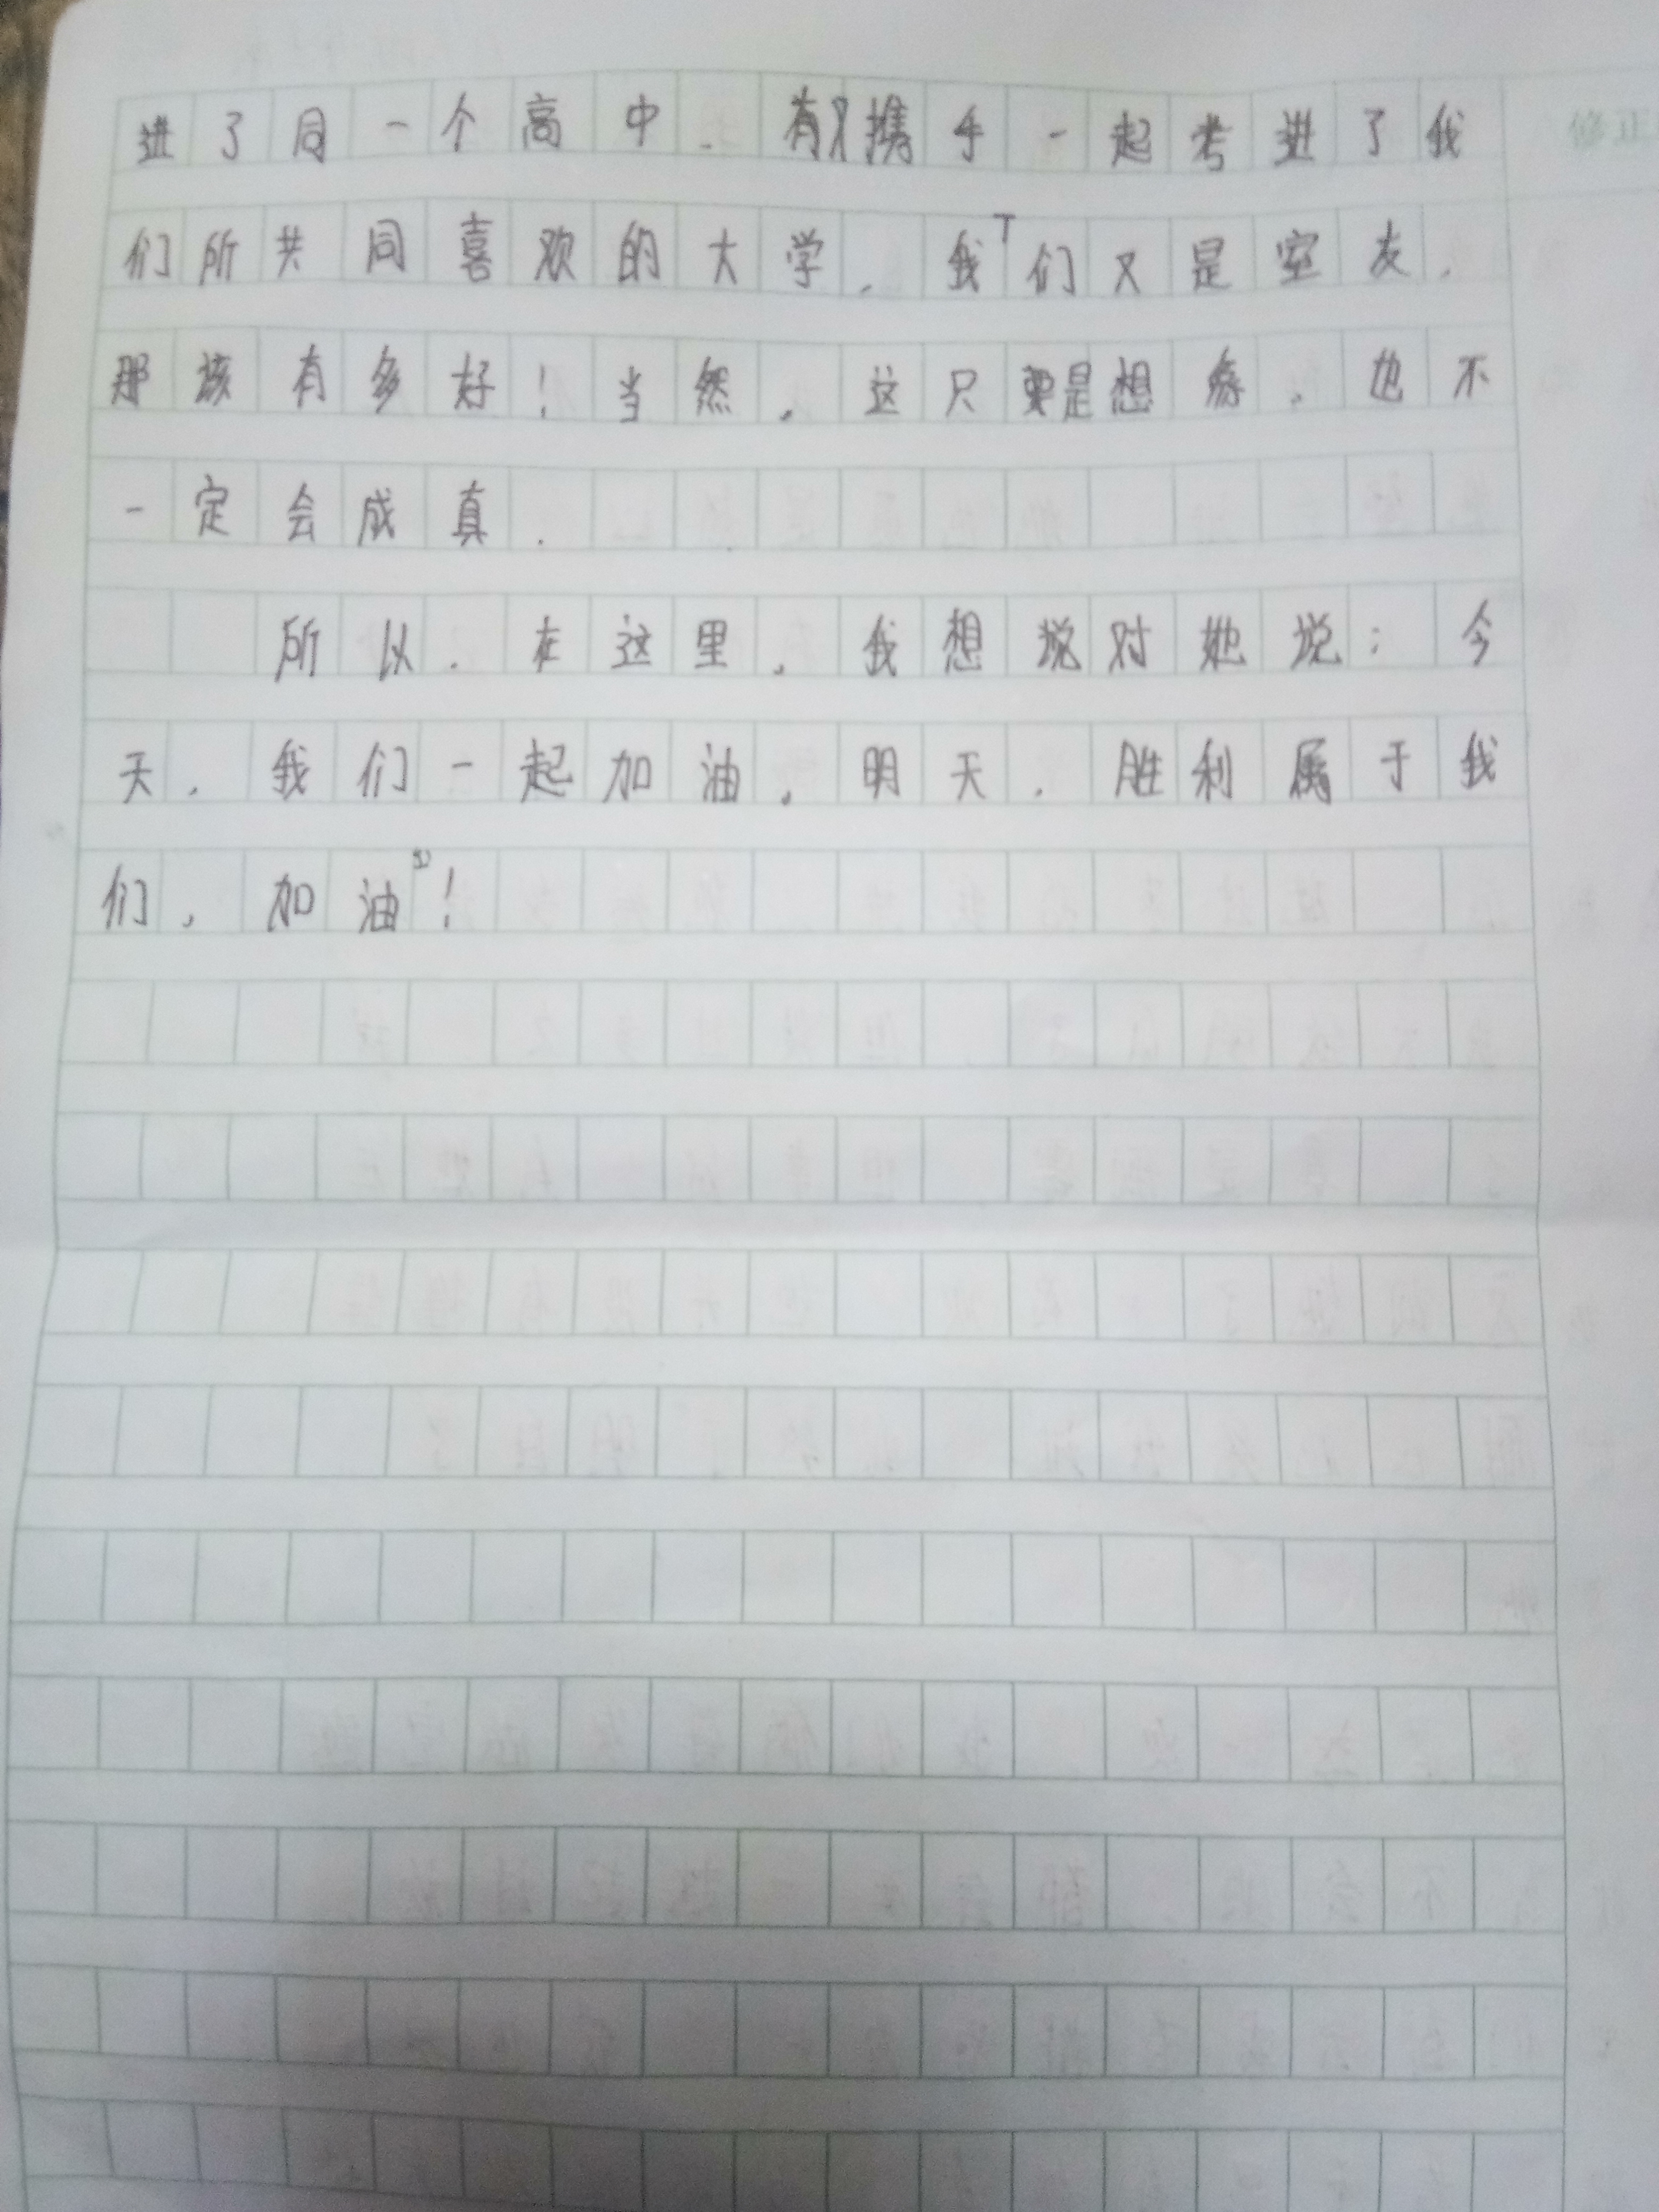 进了同一个高中.有又携手一起考进了我
们所共同喜欢的大学,我们又是室友,
那该有多好!当然,这只要是想象,也不
一定会成真.
所以,在这里,我想说对她说:今
天,我们一起加油,明天,胜利属于我
们,加油!
修正